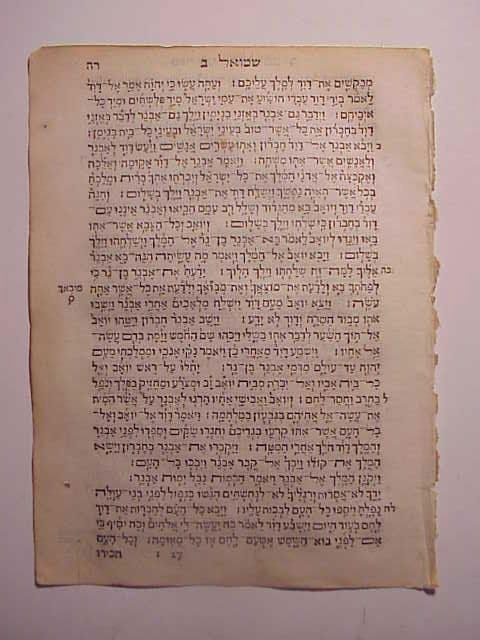 שמואל ב רה
מבקשים את־דוד למלך עליכם׃ ועתה עשו כי יהוה אמר אל־דוד
לאמר ביד דוד עבדי הושיע את־עמי ישראל מיד פלשתים ומיד כל־
איביהם׃ וידבר גם־אבנר באזני בנימין וילך גם־אבנר לדבר באזני
דוד בחברון את כל־אשר־טוב בעיני ישראל ובעיני כל־בית בנימן׃
ב ויבא אבנר אל־דוד חברון ואתו עשרים אנשים ויעש דוד לאבנר
ולאנשים אשר־אתו משתה׃ ויאמר אבנר אל־דוד אקומה ואלכה
ואקבצה אל־אדני המלך את־כל־ישראל ויכרתו אתך ברית ומלכת
בכל אשר־תאוה נפשך וישלח דוד את־אבנר וילך בשלום׃ והנה
עבדי דוד ויואב בא מהגדוד ושלל רב עמם הביאו ואבנר איננו עם
דוד בחברון כי שלחו וילך בשלום׃ ויואב וכל־הצבא אשר־אתו
באו ויגדו ליואב לאמר בא־אבנר בן־נר אל־המלך וישלחהו וילך
בשלום׃ ויבא יואב אל־המלך ויאמר מה עשיתה הנה־בא אבנר
כה אליך למה־זה שלחתו וילך הלוך׃ ידעת את־אבנר בן־נר כי
לפתתך בא ולדעת את־מוצאך ואת־מבואך ולדעת את כל־אשר אתה מובאך ק
עשה׃ ויצא יואב מעם דוד וישלח מלאכים אחרי אבנר וישבו
אתו מבור הסרה ודוד לא ידע׃ וישב אבנר חברון ויטהו יואב
אל־תוך השער לדבר אתו בשלי ויכהו שם החמש וימת בדם עשה־
אל אחיו׃ וישמע דוד מאחרי כן ויאמר נקי אנכי וממלכתי מעם
יהוה עד־עולם מדמי אבנר בן־נר׃ יחלו על־ראש יואב ואל
כל־בית אביו ואל־יכרת מבית יואב זב ומצרע ומחזיק בפלך ונפל
ל בחרב וחסר־לחם׃ ויואב ואבישי אחיו הרגו לאבנר על אשר המית
את־עשהאל אחיהם בגבעון במלחמה׃ ויאמר דוד אל־יואב ואל־
כל־העם אשר־אתו קרעו בגדיכם וחגרו שקים וספדו לפני אבנר
והמלך דוד הלך אחרי המטה׃ ויקברו את־אבנר בחברון וישא
המלך את־קולו ויבך אל־קבר אבנר ויבכו כל־העם׃
ויקנן המלך אל־אבנר ויאמר הכמות נבל ימות אבנר׃
ידך לא־אסרות ורגליך לא־לנחשתים הגשו כנפול לפני בני־עולה
לה נפלת ויספו כל־העם לבכות עליו׃ ויבא כל־העם להברות את־דוד
לחם בעוד היום וישבע דוד לאמר כה יעשה־לי אלהים וכה יסיף כי
אם־לפני בוא־השמש אטעם־לחם או כל־מאומה׃ וכל־העם
הכירו